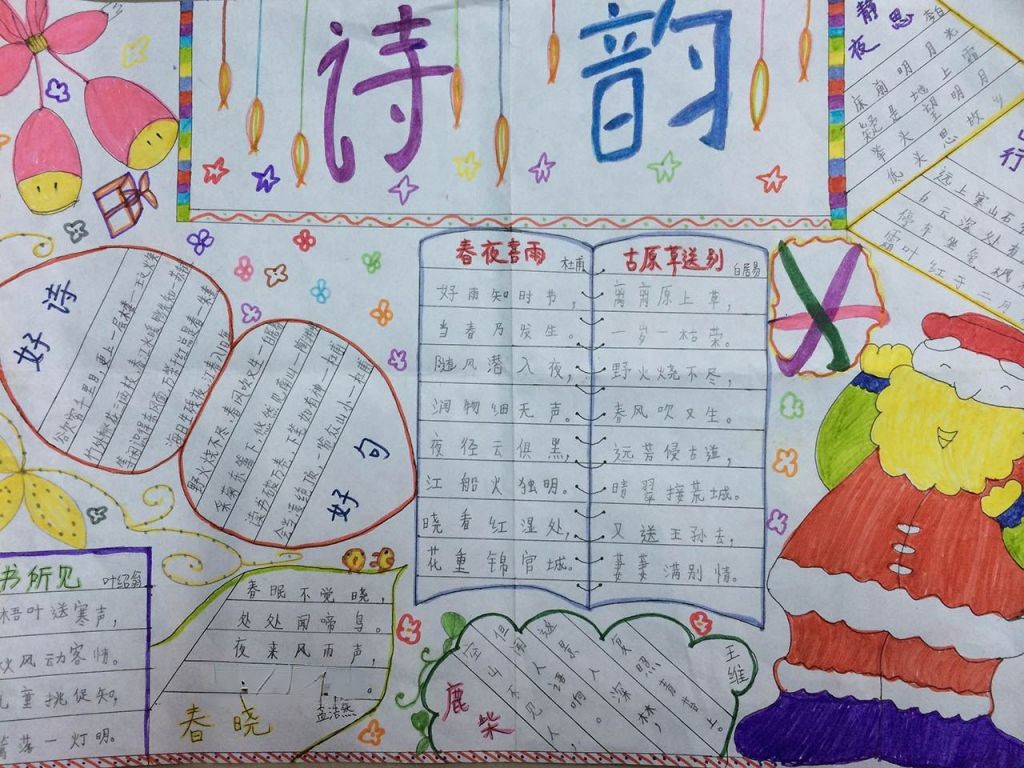 诗韵
静夜思
李白
床前明月光
疑是地上霜
举头望明月
低头思故乡
行
远上寒山石
白云深处有
停车坐爱枫
霜叶红于二月
好诗
欲穷千里目,更上一层楼—王之涣
竹外桃花三两枝,春江水暖鸭先知—苏轼
等闲识得东风面,万紫千红总是春—朱熹
海日生残夜,江春入旧年
野火烧不尽,春风吹又生—白居易
采菊东篱下,悠然见南山—陶渊明
读书破万卷,下笔如有神—杜甫
会当凌绝顶,一览众山小—杜甫
好句
春夜喜雨
杜甫
好雨知时节,
当春乃发生。
随风潜入夜,
润物细无声。
夜径云俱黑,
江船火独明。
晓看红湿处,
花重锦官城。
古原草送别
白居易
离离原上草,
一岁一枯荣。
野火烧不尽,
春风吹又生。
远芳侵古道,
晴翠接荒城。
又送王孙去,
萋萋满别情。
书所见
叶绍翁
梧叶送寒声,
吹风动客情。
儿童挑促知,
篱落一灯明。
春眠不觉晓,
处处闻啼鸟。
夜来风雨声,
孟浩然
春晓
鹿柴
王维
空山不见人,
但闻人语响。
返景入深林,
复照青苔上。